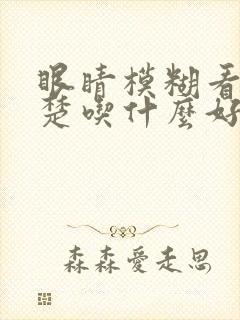 眼睛模糊看
楚喫什麼好
森森愛走思